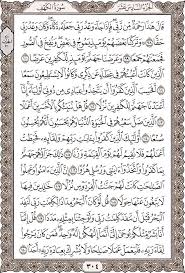 الجزء السادس عشر
سورة الكهف
قَالَ هَٰذَا رَحْمَةٌ مِّن رَّبِّي فَإِذَا جَاءَ وَعْدُ رَبِّي جَعَلَهُ دَكَّاءَ وَكَانَ وَعْدُ رَبِّي
حَقًّا ٩٨ وَتَرَكْنَا بَعْضَهُمْ يَوْمَئِذٍ يَمُوجُ فِي بَعْضٍ وَنُفِخَ فِي الصُّورِ
فَجَمَعْنَاهُمْ جَمْعًا ٩٩ وَعَرَضْنَا جَهَنَّمَ يَوْمَئِذٍ لِّلْكَافِرِينَ عَرْضًا
١٠٠ الَّذِينَ كَانَتْ أَعْيُنُهُمْ فِي غِطَاءٍ عَن ذِكْرِي وَكَانُوا لَا يَسْتَطِيعُونَ سَمْعًا
١٠١ أَفَحَسِبَ الَّذِينَ كَفَرُوا أَن يَتَّخِذُوا عِبَادِي مِن دُونِي أَوْلِيَاءَ إِنَّا
أَعْتَدْنَا جَهَنَّمَ لِلْكَافِرِينَ نُزُلًا ١٠٢ قُلْ هَلْ نُنَبِّئُكُم بِالْأَخْسَرِينَ
أَعْمَالًا ١٠٣ الَّذِينَ ضَلَّ سَعْيُهُمْ فِي الْحَيَاةِ الدُّنْيَا وَهُمْ يَحْسَبُونَ أَنَّهُمْ
يُحْسِنُونَ صُنْعًا ١٠٤ أُولَٰئِكَ الَّذِينَ كَفَرُوا بِآيَاتِ رَبِّهِمْ وَلِقَائِهِ
فَحَبِطَتْ أَعْمَالُهُمْ فَلَا نُقِيمُ لَهُمْ يَوْمَ الْقِيَامَةِ وَزْنًا ١٠٥ ذَٰلِكَ جَزَاؤُهُمْ
جَهَنَّمُ بِمَا كَفَرُوا وَاتَّخَذُوا آيَاتِي وَرُسُلِي هُزُوًا ١٠٦ إِنَّ الَّذِينَ آمَنُوا
وَعَمِلُوا الصَّالِحَاتِ كَانَتْ لَهُمْ جَنَّاتُ الْفِرْدَوْسِ نُزُلًا ١٠٧ خَالِدِينَ فِيهَا
لَا يَبْغُونَ عَنْهَا حِوَلًا ١٠٨ قُل لَّوْ كَانَ الْبَحْرُ مِدَادًا لِّكَلِمَاتِ رَبِّي لَنَفِدَ
الْبَحْرُ قَبْلَ أَن تَنفَدَ كَلِمَاتُ رَبِّي وَلَوْ جِئْنَا بِمِثْلِهِ مَدَدًا ١٠٩ قُلْ إِنَّمَا
أَنَا بَشَرٌ مِّثْلُكُمْ يُوحَىٰ إِلَيَّ أَنَّمَا إِلَٰهُكُمْ إِلَٰهٌ وَاحِدٌ فَمَن كَانَ يَرْجُو لِقَاءَ
رَبِّهِ فَلْيَعْمَلْ عَمَلًا صَالِحًا وَلَا يُشْرِكْ بِعِبَادَةِ رَبِّهِ أَحَدًا ١١٠
٣٠٤